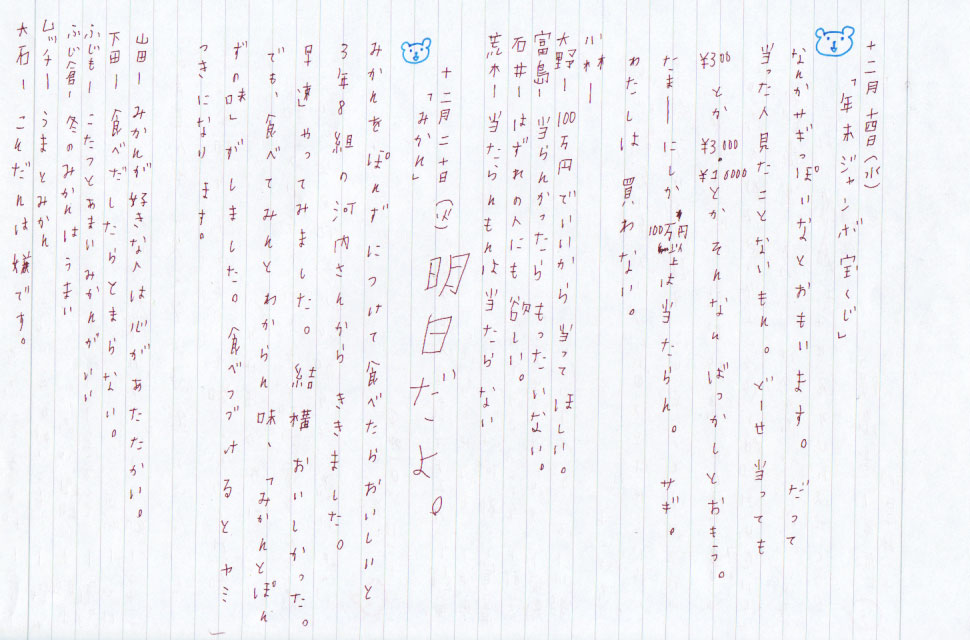 十二月十四日(水)
「年末ジャンボ宝くじ」
なんかサギっぽいなとおもいます。だって
当った人見たことないもん。どーせ当っても
¥300とか¥3.000 ¥10000とかそんなんばっかしとおもう。
たまーにしか100万円以上は当たらん。サギ。
わたしは買わない。
小林ー
大野ー100万円でいいから当ってほしい。
富島ー当らんかったらもったいない。
石井ーはずれの人にも欲しい。
荒木ー当たらんもんは当たらない
十二月二十日(火)
「みかん」
明日だよ。
みかんをぽんずにつけて食べたらおいしいと
3年8組の河内さんからききました。
早速やってみました。結構おいしかった。
でも、食べてみんとわからん味、「みかんとぽん
ずの味」がしました。食べつづけるとヤミ
つきになります。
山田ーみかんが好きな人は心があたたかい。
下田ー食べだしたらとまらない。
ふじもーこたつとあまいみかんがいい
ふじ倉ー冬のみかんはうまい
ムッチーうまとみかん
大石ーこんだんは嫌です。